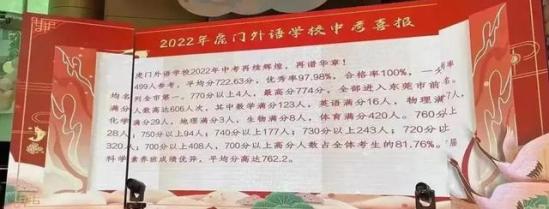 2022年虎门外语学校中考喜报
虎门外语学校2022年中考再续辉煌，再谱华章！
499人参考，平均分722.63分，优秀率97.98%，合格率100%，一 率
均名列全市第一。770分以上4人，最高分774分，全部进入东莞市前 名。
满分人数高达606人次，其中数学满分123人，英语满分16人，物理满 7人，
化学满分29人，地理满分3人，生物满分8人，体育满分420人。760分 上
28人；750分以上94人；740分以上177人；730分以上243人；720分以
320人，700以上408人，700分以上高分人数占全体考生的81.76%。 届
科学素养班成绩优异，平均分高达762.2。